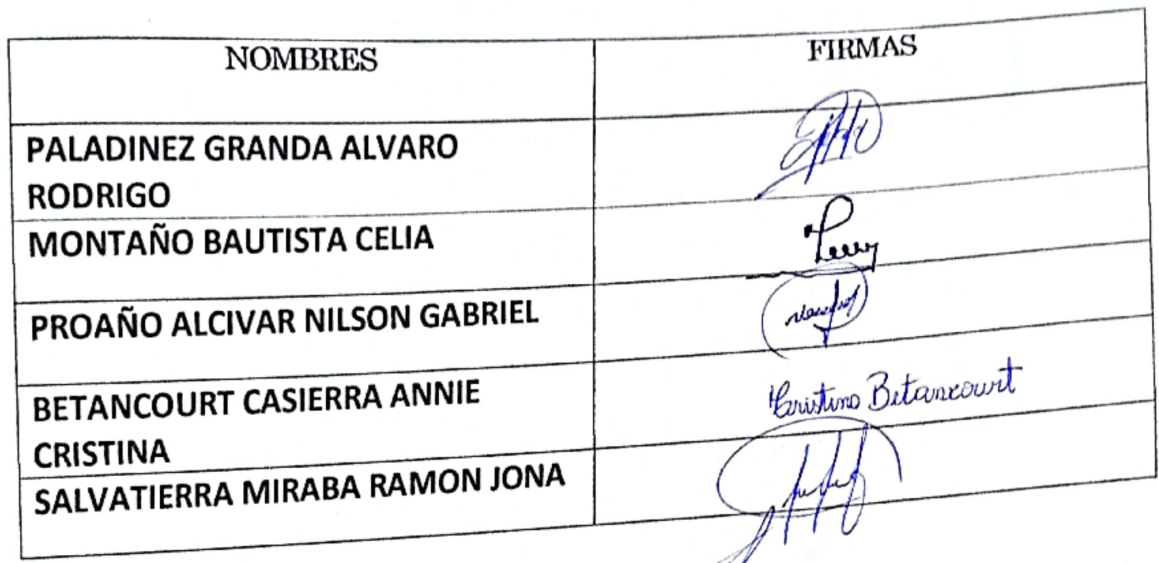 NOMBRES FIRMAS
PALADINEZ GRANDA ALVARO
RODRIGO
MONTAÑO BAUTISTA CELIA
PROAÑO ALCIVAR NILSON GABRIEL
BETANCOURT CASIERRA ANNIE
CRISTINA
Cristina Betancourt
SALVATIERRA MIRABA RAMON JONA